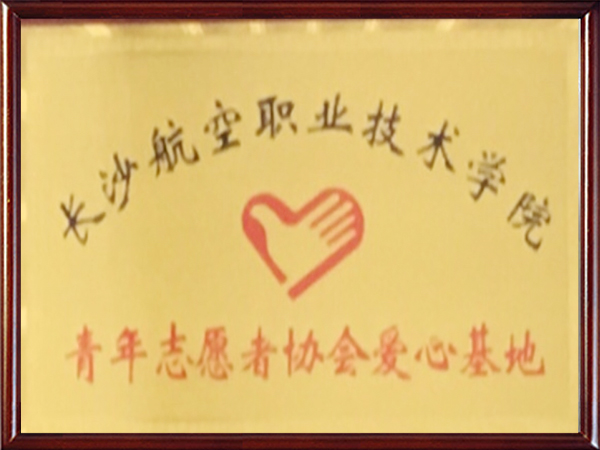 长沙航空职业技术学院
青年志愿者协会爱心基地